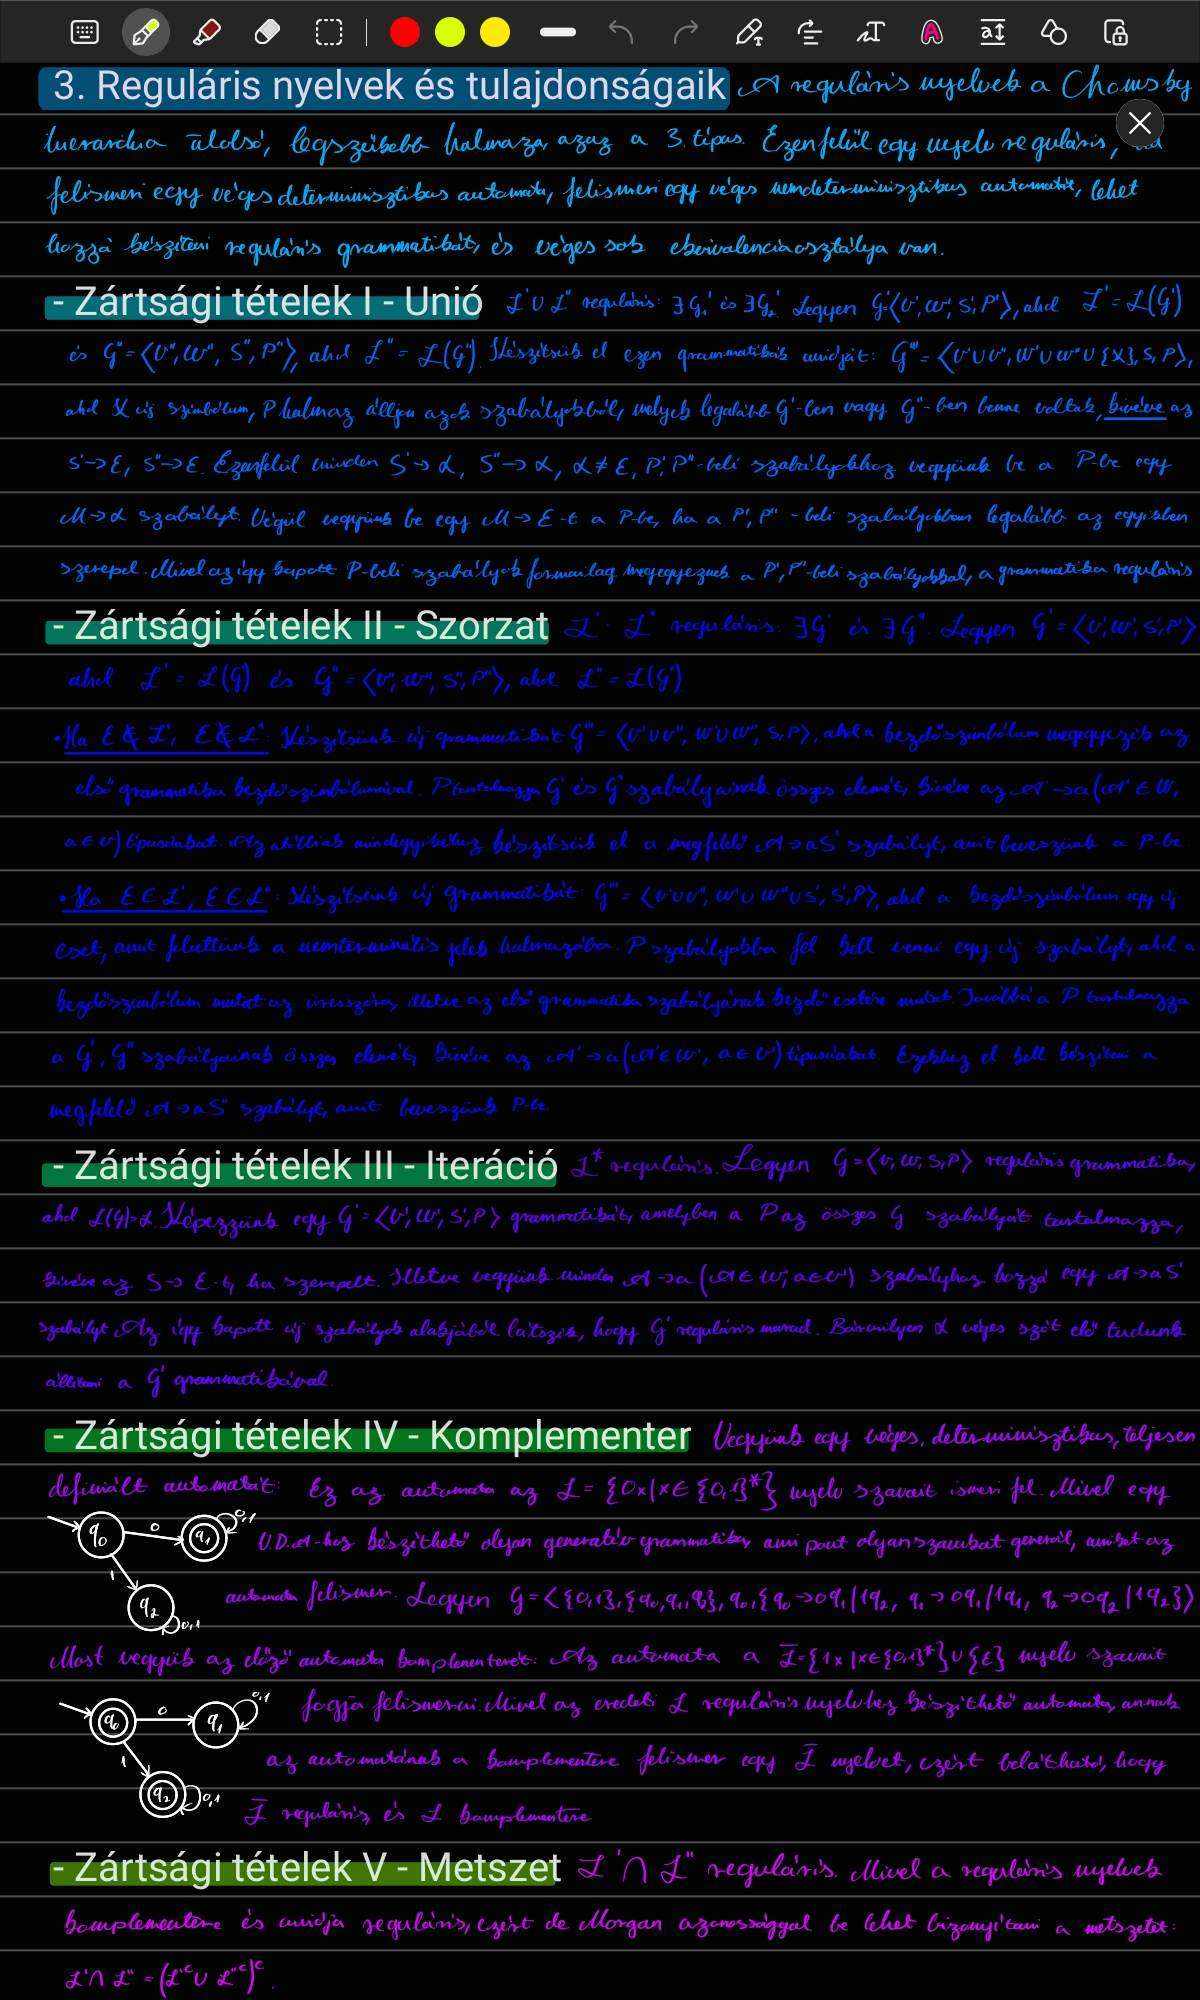 3. Reguláris nyelvek és tulajdonságaik A reguláris nyelvek a Chomsky
hierarchia alsó, legszűkebb halmaza, azaz a 3. típus. Ezenfelül egy nyelv reguláris, ha
felismeri egy véges determinisztikus automata, felismeri egy véges nemdeterminisztikus automata, lehet
hozzá készíteni reguláris grammatikát, és véges sok ekvivalenciaosztálya van.
- Zártsági tételek I - Unió L' ∪ L'' reguláris: ∃G' és ∃G''. Legyen G'=⟨V', W', S', P'⟩, ahol L' = L(G')
és G''=⟨V'', W'', S'', P''⟩, ahol L'' = L(G''). Készítsük el ezen grammatikák unióját: G'''=⟨V'∪V'', W'∪W''∪{X}, S, P⟩,
ahol X új szimbólum, P halmaz álljon azok szabályokból, melyek legalább G'-ben vagy G''-ben benne voltak, kivéve az
S'→ε, S''→ε. Ezenfelül minden S'→α, S''→α, α≠ε, P', P''-beli szabályokhoz vegyünk be a P-be egy
M→α szabályt. Végül vegyünk be egy M→ε-t a P-be, ha a P', P''-beli szabályokban legalább az egyikben
szerepel. Mivel az így kapott P-beli szabályok formailag megegyeznek a P', P''-beli szabályokkal, a grammatika reguláris
- Zártsági tételek II - Szorzat L' · L'' reguláris. ∃G' és ∃G''. Legyen G'=⟨V', W', S', P'⟩
ahol L' = L(G') és G''=⟨V'', W'', S'', P''⟩, ahol L'' = L(G'')
• Ha ε∉L', ε∉L'': Készítsünk új grammatikát G'''=⟨V'∪V'', W'∪W'', S', P⟩, ahol a kezdőszimbólum megegyezik az
első grammatika kezdőszimbólumával. P tartalmazza G' és G'' szabályainak összes elemét, kivéve az A'→a (A'∈W',
a∈V') típusúakat. Az utóbbiak mindegyikéhez készítsük el a megfelelő A→aS'' szabályt, amit beveszünk a P-be
• Ha ε∈L', ε∈L'': Készítsünk új grammatikát: G'''=⟨V'∪V'', W'∪W''∪S', S', P⟩, ahol a kezdőszimbólum egy új
eset, amit felvettünk a nemterminális jelek halmazába. P szabályokba fel kell venni egy új szabályt, ahol a
kezdőszimbólum mutat az üresszóra, illetve az első grammatika szabályának kezdő esetére mutat. Továbbá a P tartalmazza
a G', G'' szabályainak összes elemét, kivéve az A'→a (A'∈W', a∈V') típusúakat. Ezekhez el kell készíteni a
megfelelő A→aS'' szabályt, amit beveszünk P-be.
- Zártsági tételek III - Iteráció L* reguláris. Legyen G=⟨V, W, S, P⟩ reguláris grammatika,
ahol L(G)=L. Képezzünk egy G'=⟨V', W', S', P'⟩ grammatikát, amelyben a P az összes G szabályát tartalmazza,
kivéve az S→ε-t, ha szerepelt. Illetve vegyünk minden A→a (A∈W', a∈V') szabályhoz hozzá egy A→aS'
szabályt. Az így kapott új szabályok alakjából látszik, hogy G' reguláris marad. Bármilyen α véges szót elő tudunk
állítani a G' grammatikával.
- Zártsági tételek IV - Komplementer Vegyünk egy véges, determinisztikus, teljesen
definiált automatát: Ez az automata az L = {0x|x∈{0,1}*} nyelv szavait ismeri fel. Mivel egy
q0 0 q1 0,1 V.D.A-hoz készíthető olyan generatív grammatika, ami pont olyan szavakat generál, amiket az
1 q2 0,1 automata felismer. Legyen G=⟨{0,1},{q0,q1,q2}, q0, {q0→0q1|1q2, q1→0q1|1q1, q2→0q2|1q2}⟩
Most vegyük az előző automata komplementerét. Az automata a L̄={1x|x∈{0,1}*}∪{ε} nyelv szavait
q0 0 q1 0,1 fogja felismerni. Mivel az eredeti L reguláris nyelvhez készíthető automata, annak
1 az automatának a komplementere felismer egy L̄ nyelvet, ezért belátható, hogy
q2 0,1 L̄ reguláris, és L komplementere
- Zártsági tételek V - Metszet L' ∩ L'' reguláris. Mivel a reguláris nyelvek
komplementere és uniója reguláris, ezért de Morgan azonossággal be lehet bizonyítani a metszetet:
L' ∩ L'' = (L'ᶜ ∪ L''ᶜ)ᶜ.